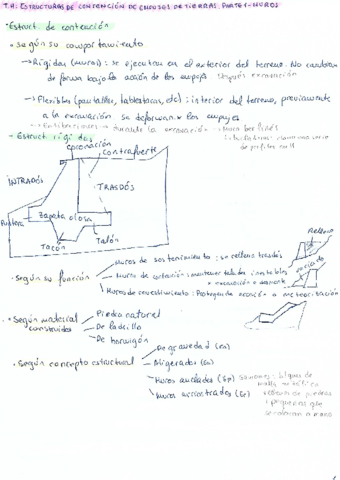 T.4: ESTRUCTURAS DE CONTENCIÓN DE EMPUJES DE TIERRAS. PARTE 1 - MUROS
· Estruct. de contención
→ según su comportamiento
→ Rígidas (muros): se ejecutan en el exterior del terreno. No cambian
de forma bajo la acción de los empujes después excavación
→ Flexibles (pantallas, tablestacas, etc): interior del terreno, previamente
a la excavación se deforman x los empujes
durante la excavación
de perfiles en H
- Estruct rígidas
coronación
contrafuerte
INTRADÓS
TRASDÓS
Puntera
Zapata o losa
Tacón
Talón
Relleno
vaciado
· Según su función
Muros de sostenimiento: se rellena trasdós
Muros de contención: mantener taludes inestables
x excavación o desmonte
Muros de revestimiento: Protegen de erosión o meteorización
· Según material construidos
Piedra natural
De ladrillo
De hormigón
· Según concepto estructural
De gravedad (Gr)
Aligerados
Muros anclados
Muros arriostrados
Gaviones: bloques de
malla metálica
rellenos de piedras
pequeñas que
se colocan a mano